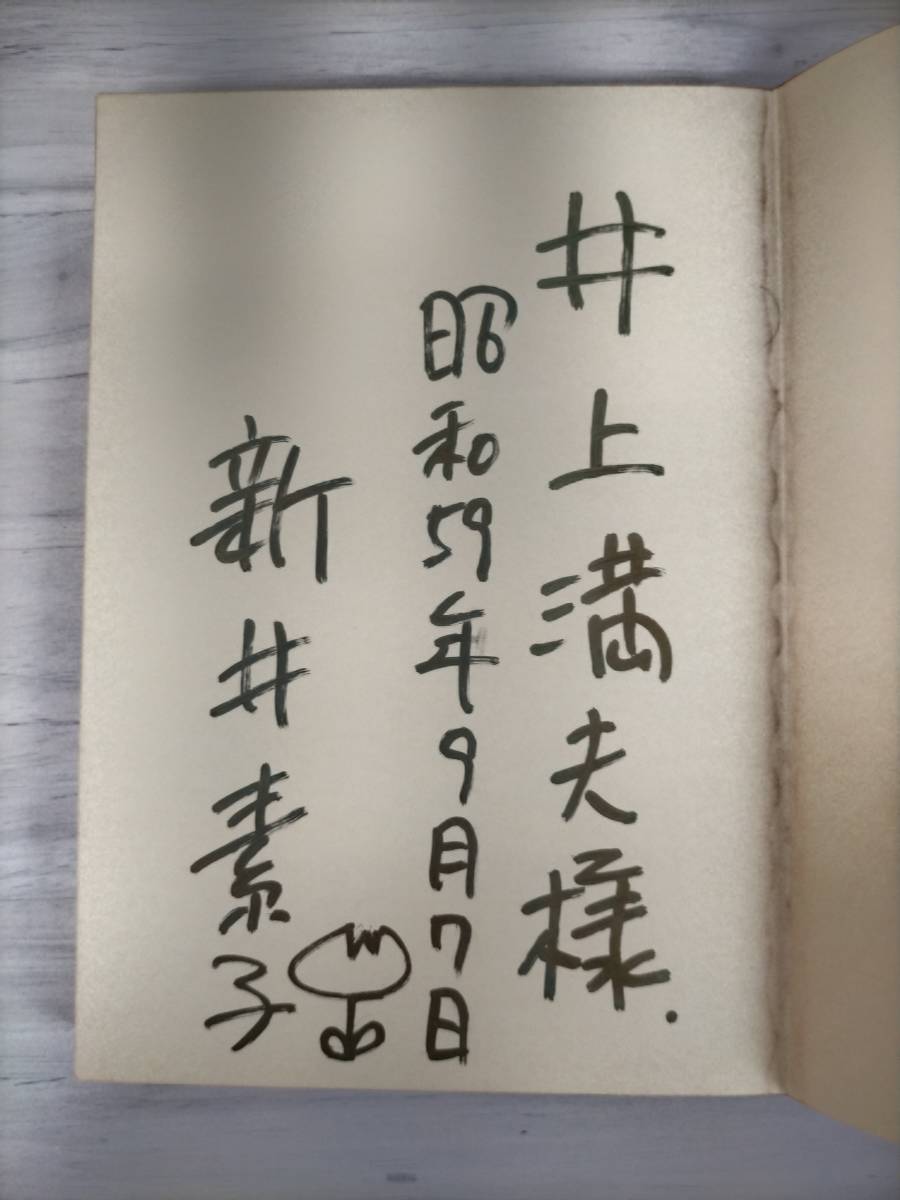 井上満夫様.
昭和59年9月7日
新井素子